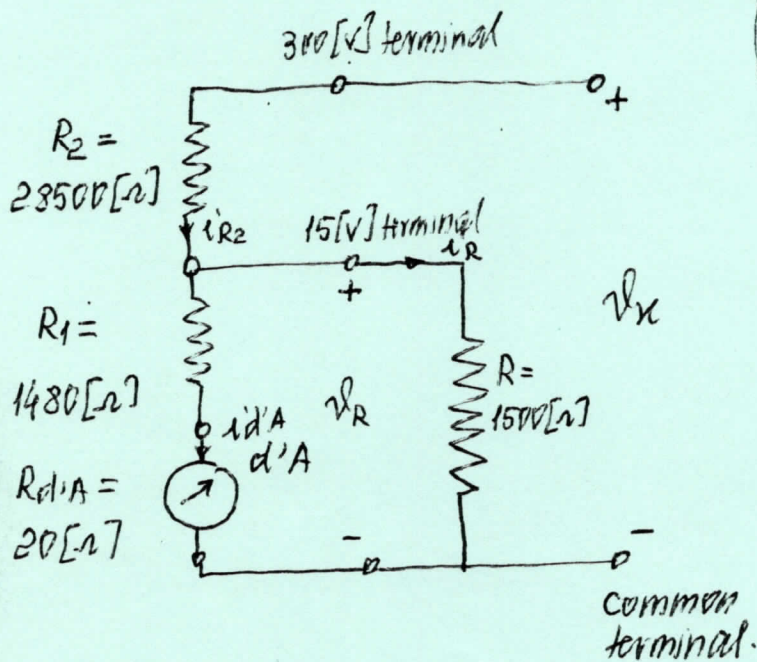 300[V] terminal
+
R2 =
28500[Ω]
iR2
15[V] terminal
iR
+
R1 =
1480[Ω]
vx
R =
1500[Ω]
vR
id'A
d'A
Rd'A =
20[Ω]
-
-
common
terminal.